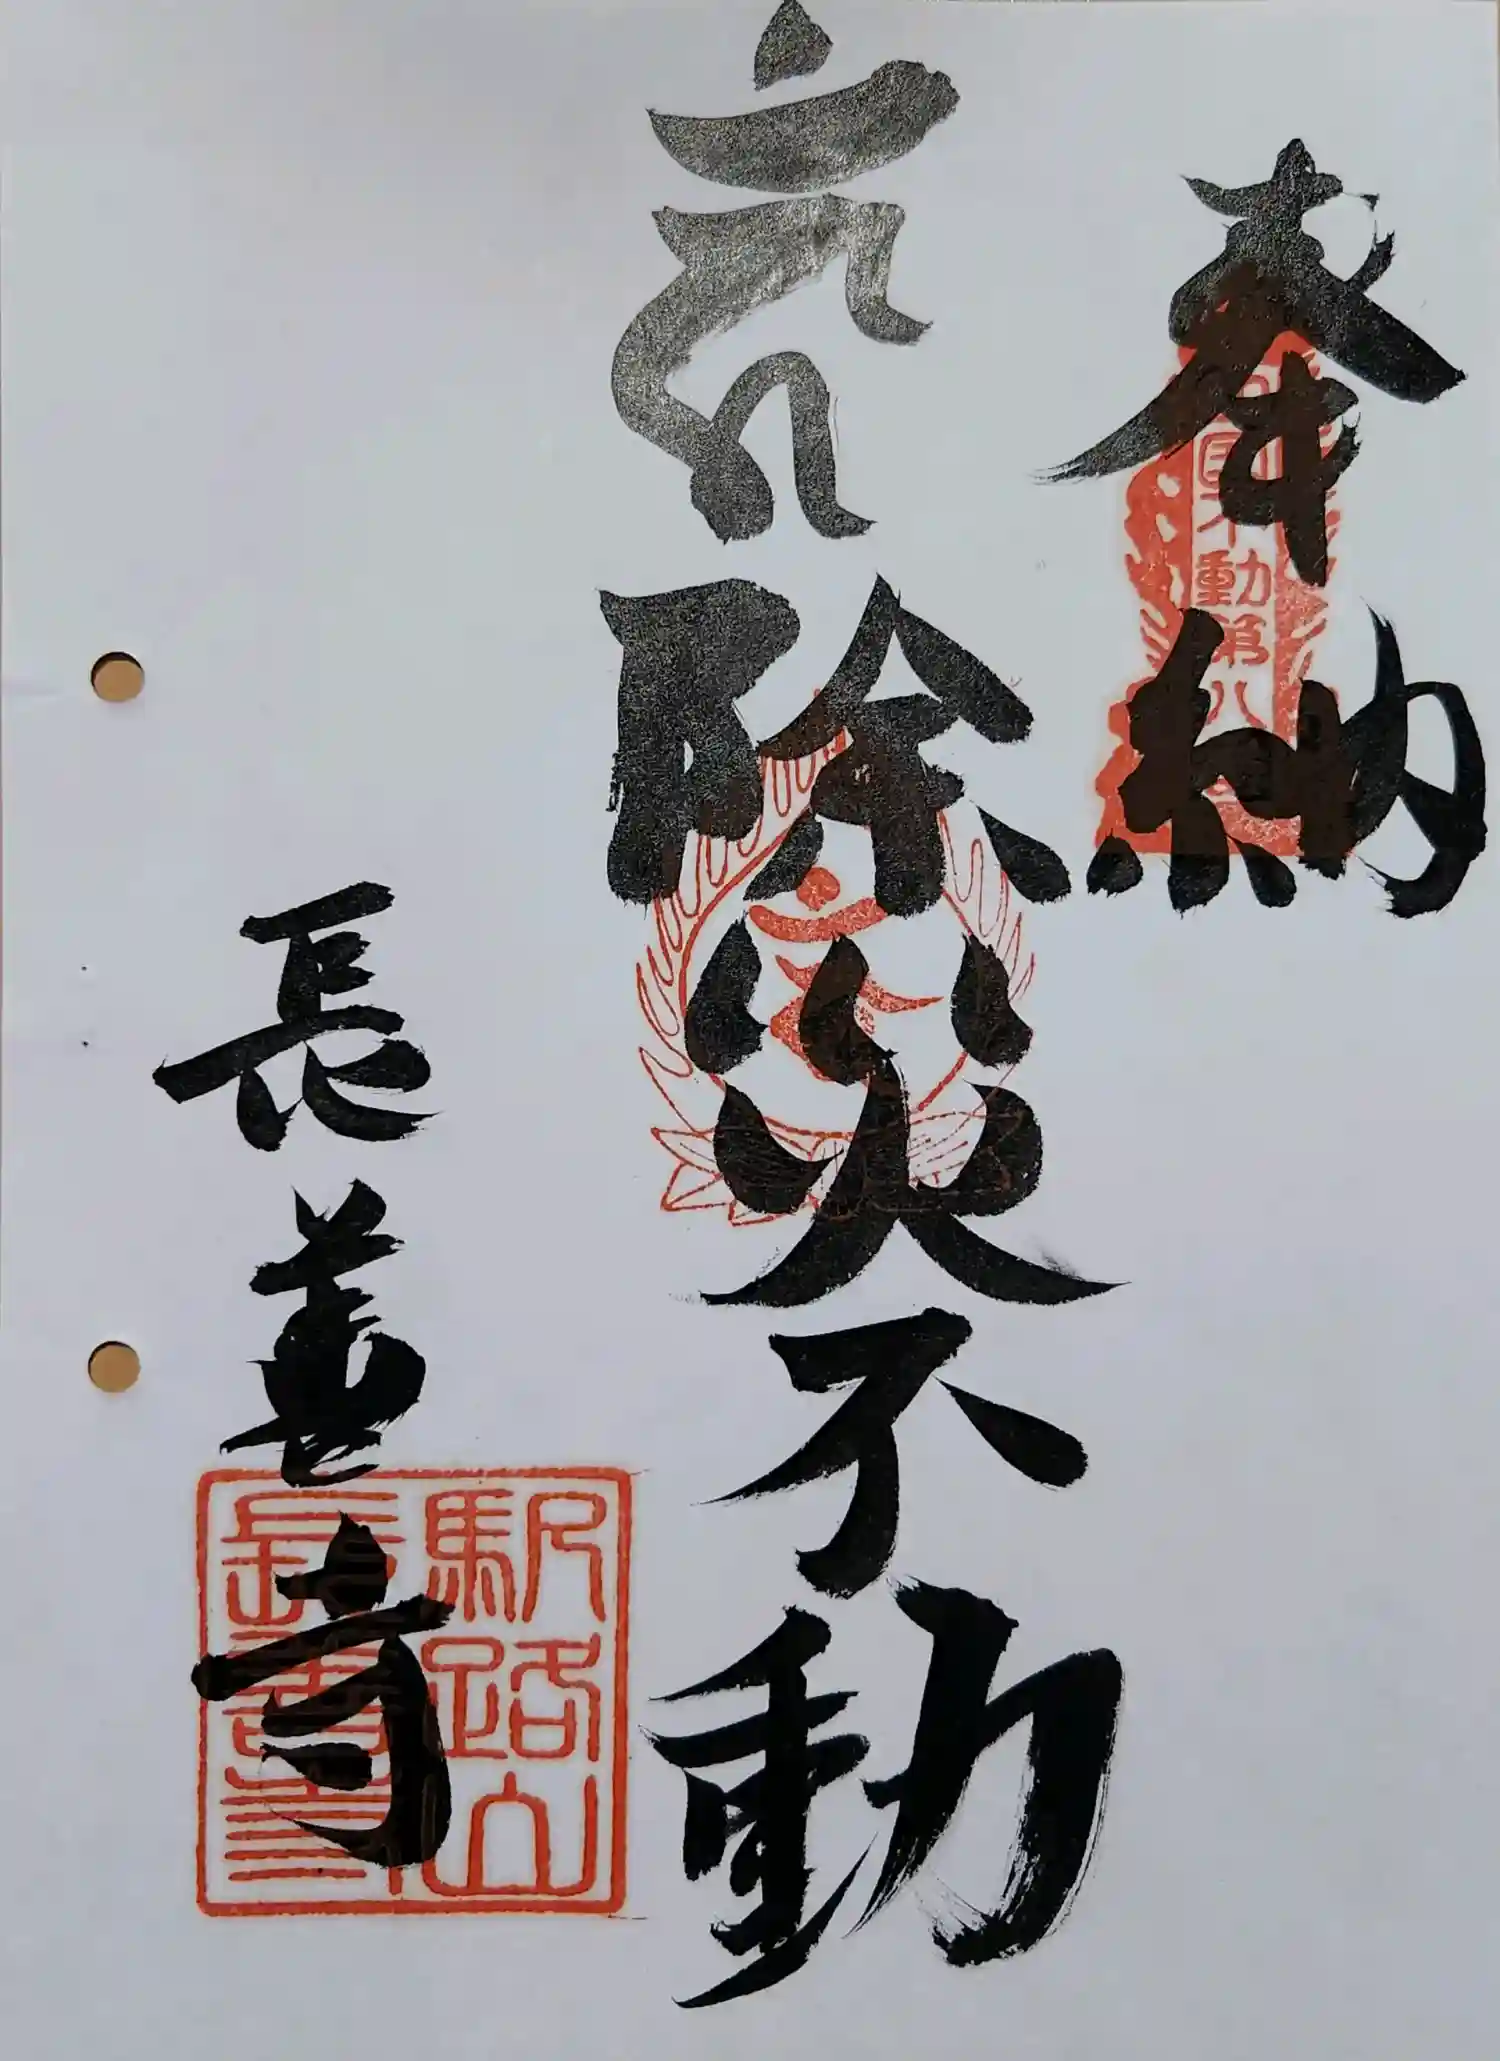 奉納
不動第八
𑖮𑖯𑖽
除災不動
長善寺
駅路山
長善寺